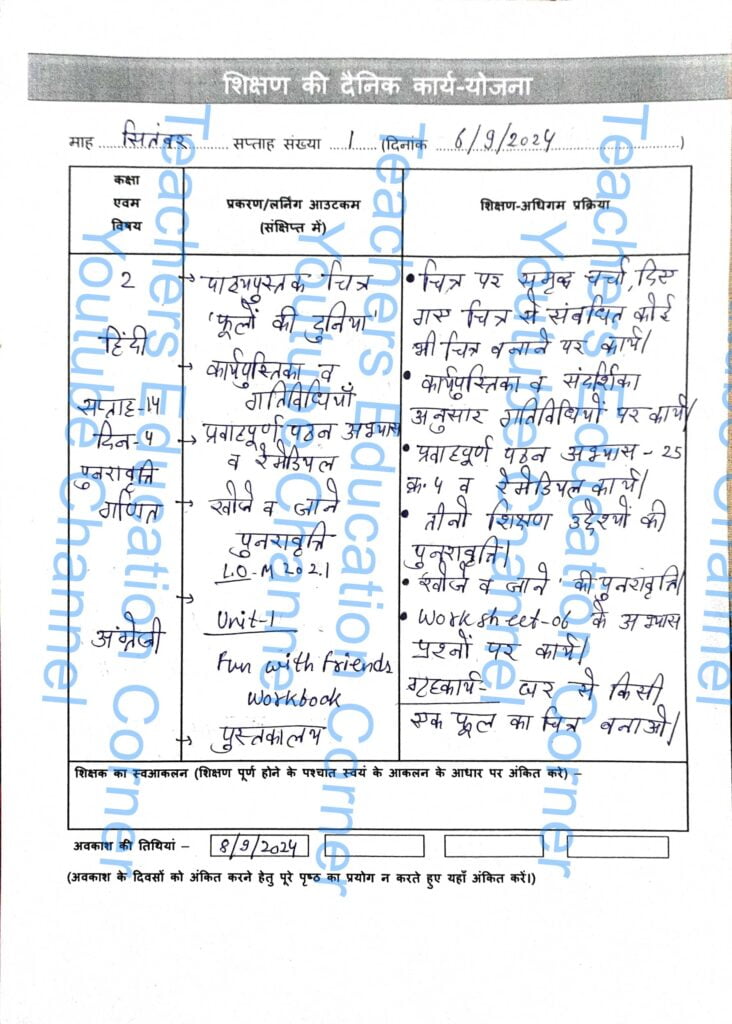 शिक्षण की दैनिक कार्य-योजना
माह सितंबर सप्ताह संख्या 1 (दिनांक 6/9/2024)
कक्षा
एवम
विषय
प्रकरण/लर्निंग आउटकम
(संक्षिप्त में)
शिक्षण-अधिगम प्रक्रिया
2
हिंदी
सप्ताह-14
दिन-4
पुनरावृत्ति
गणित
अंग्रेजी
→ पाठ्यपुस्तक चित्र
'फूलों की दुनिया'
→ कार्यपुस्तिका व
गतिविधियाँ
→ प्रवाहपूर्ण पठन अभ्यास
व रेमेडियल
→ खोजे व जाने
पुनरावृत्ति
L.O-M202.1
→
Unit-1
Fun with friends
Workbook
→ पुस्तकालय
• चित्र पर समृद्ध चर्चा, दिए
गए चित्र से संबंधित कोई
भी चित्र बनाने पर कार्य।
• कार्यपुस्तिका व संदर्शिका
अनुसार गतिविधियों पर कार्य।
• प्रवाहपूर्ण पठन अभ्यास - 25
क्र. 4 व रेमेडियल कार्य।
• तीनो शिक्षण उद्देश्यों की
पुनरावृत्ति।
• 'खोजे व जाने' की पुनरावृत्ति।
• Worksheet-06 के अभ्यास
प्रश्नों पर कार्य।
गृहकार्य- घर से किसी
एक फूल का चित्र बनाओ।
शिक्षक का स्वआकलन (शिक्षण पूर्ण होने के पश्चात स्वयं के आकलन के आधार पर अंकित करे) –
अवकाश की तिथियां – 8/9/2024
(अवकाश के दिवसों को अंकित करने हेतु पूरे पृष्ठ का प्रयोग न करते हुए यहाँ अंकित करें।)
Teachers Education Corner
Youtube Channel
Teachers Education Corner
Youtube Channel
Teachers Education Corner
Youtube Channel